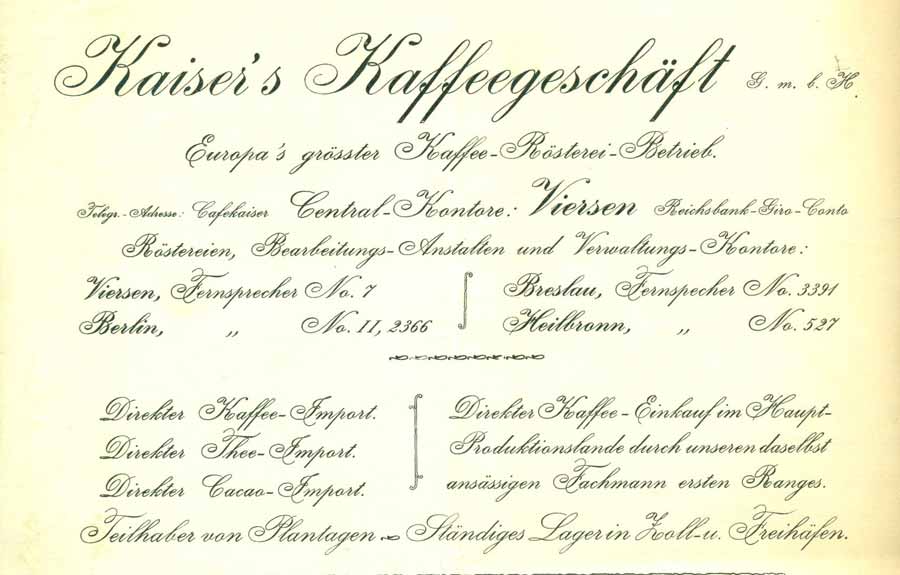 Kaiser's Kaffeegeschäft G. m. b. H.
Europa's grösster Kaffee-Rösterei-Betrieb.
Telegr.-Adresse: Cafekaiser Central-Kontore: Viersen Reichsbank-Giro-Conto
Röstereien, Bearbeitungs-Anstalten und Verwaltungs-Kontore:
Viersen, Fernsprecher No. 7
Berlin, „ No. II, 2366
Breslau, Fernspecher No. 3391
Heilbronn, „ No. 527
Direkter Kaffee-Import.
Direkter Thee-Import.
Direkter Cacao-Import.
Direkter Kaffee-Einkauf im Haupt-
Produktionslande durch unseren daselbst
ansässigen Fachmann ersten Ranges.
Teilhaber von Plantagen ~ Ständiges Lager in Zoll-u. Freihäfen.